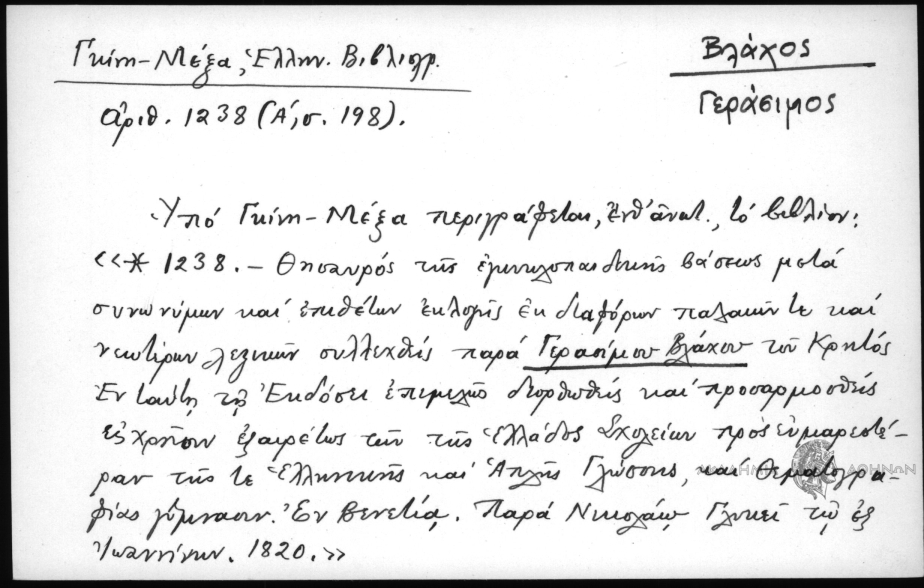 Γκίνη-Μέξα, Ἑλλην. Βιβλιογρ.
ἀριθ. 1238 (Α΄, σ. 198).
Βλάχος
Γεράσιμος
Ὑπό Γκίνη-Μέξα περιγράφεται, ἔνθ' ἀνωτ., τό βιβλίον:
«* 1238. – Θησαυρός τῆς ἐγκυκλοπαιδικῆς βάσεως μετά
συνωνύμων καί ἐπιθέτων ἐκλογῆς ἐκ διαφόρων παλαιῶν τε καί
νεωτέρων λεξικῶν συλλεχθείς παρά Γερασίμου Βλάχου τοῦ Κρητός
Ἐν ταύτῃ τῇ Ἐκδόσει ἐπιμελῶς διορθωθείς καί προσαρμοσθείς
εἰς χρῆσιν ἐξαιρέτως τῶν τῆς Ἑλλάδος Σχολείων πρός εὐμαρεστέ-
ραν τῆς τε Ἑλληνικῆς καί Ἁπλῆς Γλώσσης, καί Θεματογρα-
φίας γύμνασιν. Ἐν Βενετίᾳ. Παρά Νικολάῳ Γλυκεῖ τῷ ἐξ
Ἰωαννίνων. 1820.»
ΑΚΑΔΗΜΙΑ ΑΘΗΝΩΝ